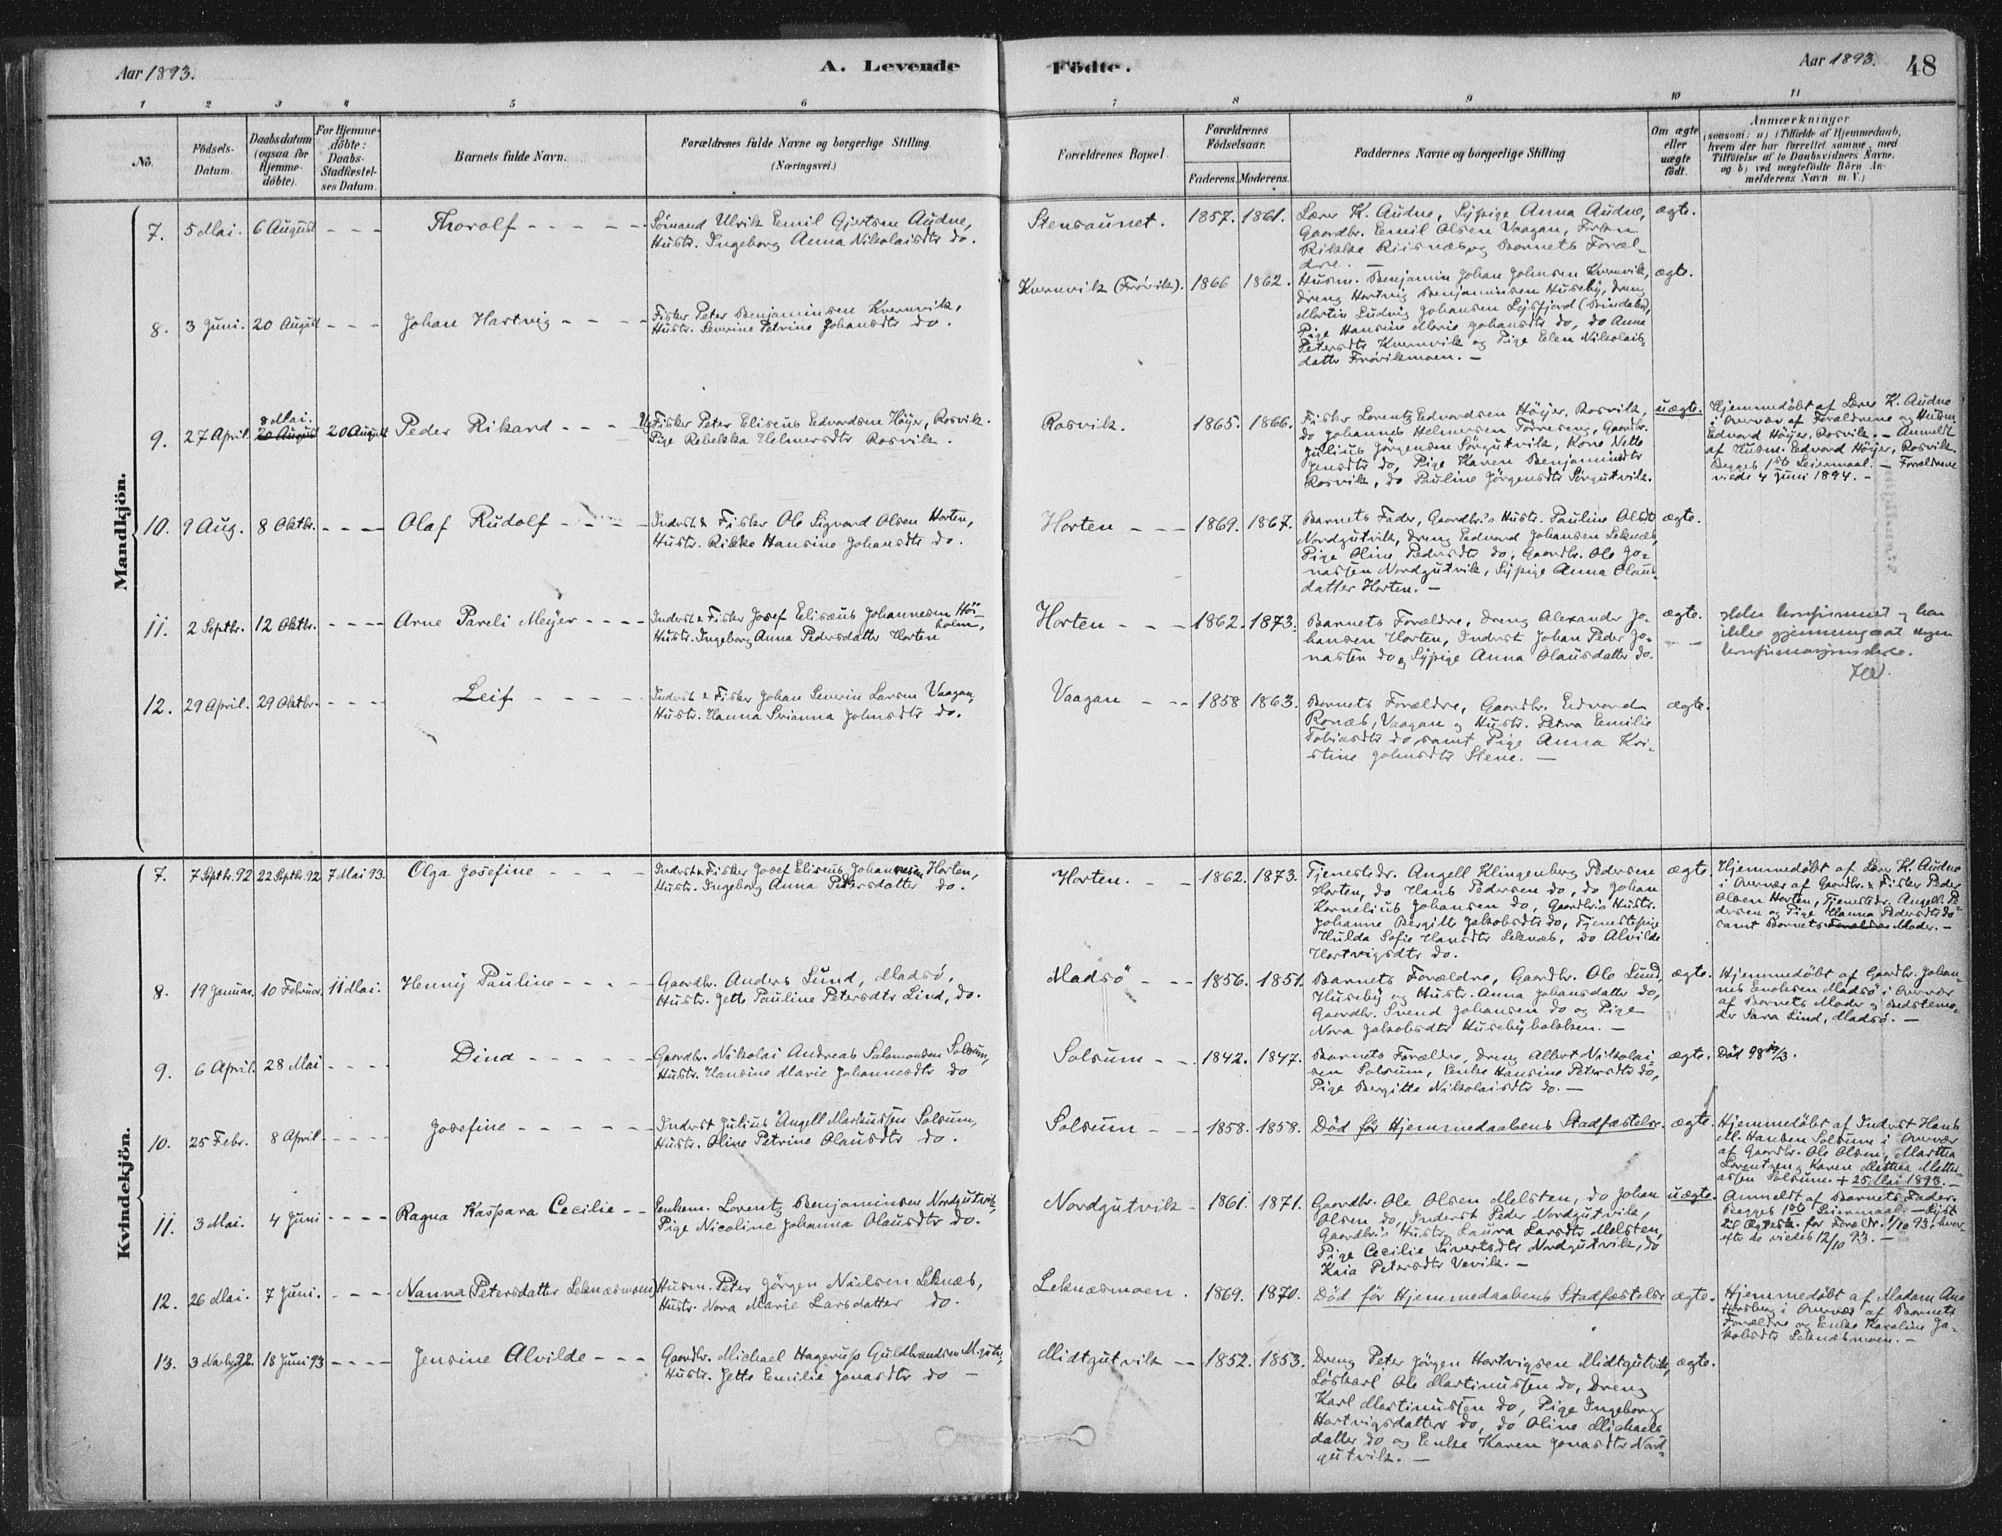 Aar 1893.
A. Levende
Födte.
Aar 1893.
48
1 2 3 4 5 6 7 8 9 10 11
No.
Födsels-
Datum.
Daabsdatum
(ogsaa for
Hjemme-
döbte).
For Hjemme-
döbte:
Daabs-
Stadfæstel-
ses Datum.
Barnets fulde Navn.
Forældrenes fulde Navne og borgerlige Stilling
(Næringsvei.)
Forældrenes Bopæl.
Forældrenes
Födselsaar.
Faderens. Moderens.
Faddernes Navne og borgerlige Stilling
Om ægte
eller
uægte
födt.
Anmærkninger
(saasom: a) i Tilfælde af Hjemmedaab,
hvem der har forrettet samme, med
Tilföielse af to Daabsvidners Navne.
og b) ved uægtefödte Börn An-
melderens Navn m. V.)
Mandkjön.
7. 5 Mai. 6 August - - - Thorolf - - - - -
Sømand Ulrik Emil Gjertsen Audne,
Hustr. Ingeborg Anna Nikolaisdtr do.
Stensaunet. 1857. 1861.
Lærer K. Audne, Sypige Anna Audne,
Gaardbr. Emil Olsen Vaagan, Frkn
Rikke Riisnæs og Barnets Foræl-
dre. -
ægte.
8. 3 Juni. 20 August - - - Johan Hartvig - - - -
Fisker Peter Benjaminsen Kvernvik,
Hustr. Severine Petrine Johansdtr do.
Kvernvik (Frøvik). 1866 1862.
Husm. Benjamin Johan Johnsen Kvernvik,
Dreng Hartvig Benjaminsen Huseby, Dreng
Martin Ludvig Johansen Lysfjord (Bindalen),
Pige Hansine Marie Johansdtr do, do Anna
Petersdtr Kvernvik og Pige Elen Nikolais-
datter Frøvikmoen. -
ægte.
9. 27 April. 8 Mai. 20 August 20 August Peder Rikard - - -
Ug. Fisker Peter Eliseus Edvardsen Höyer, Rosvik.
Pige Rebekka Helmersdtr Rosvik.
Rosvik. 1865. 1866.
Fisker Lorentz Edvardsen Höyer, Rosvik,
do Johannes Helmersen Torreseng, Gaardbr.
Julius Jörgensen Sörgutvik, Kone Nette
Jensdtr do, Pige Karen Benjaminsdtr
Rosvik, do Pauline Jörgensdtr Sörgutvik.
uægte.
Hjemmedöbt af Lærer K. Audne
i Overvær af Forældrene og Husm.
Edvard Höyer, Rosvik. - Anmeldt
af Husm. Edvard Höyer, Rosvik.
Begges 1ste Leiermaal. - Forældrene
viede 4 Juni 1894. -
10. 9 Aug. 8 Oktbr. - - - Olaf Rudolf - - - -
Inderst & Fisker Ole Sigvard Olsen Horten,
Hustr. Rikke Hansine Johansdtr do.
Horten - - - 1869. 1867.
Barnets Fader, Gaardbr.'s Hustr. Pauline Olsdtr
Nordgutvik, Dreng Edvard Johansen Leknæs,
Pige Oline Pedersdtr do, Gaardbr. Ole Jo-
nassen Nordgutvik, Sypige Anna Olaus-
datter Horten. -
ægte.
11. 2 Septbr. 12 Oktbr. - - - - Arne Pareli Meyer - - - -
Inderst & Fisker Josef Elisæus Johannesen Höi-
holm,
Hustr. Ingeborg Anna Pedersdatter Horten
Horten - - - 1862. 1873.
Barnets Forældre, Dreng Alexander Jo-
hansen Horten, Inderst Johan Peder Jo-
nassen do og Sypige Anna Olausdatter do.
ægte.
ikke konfirmert og har
ikke gjennemgaat nogen
12. 29 April. 29 Oktbr. - - - - Leif - - - -
Inderst & Fisker Johan Severin Larsen Vaagan,
Hustr. Hanna Serianna Johnsdtr do.
Vaagan - - - 1858 1863.
Barnets Forældre, Gaardbr. Edvard
Ronæs, Vaagan og Hustr. Petra Emilie
Tobiasdtr do samt Pige Anna Kri-
stine Johnsdtr Stene. -
ægte.
Kvindekjön.
7. 7 Septbr. 92 22 Septbr. 92 7 Mai 93. Olga Josefine - - - -
Inderst & Fisker Josef Eliseus Johannesen Horten,
Hustr. Ingeborg Anna Pedersdatter do.
Horten. - - 1862. 1873.
Tjenestedr. Angell Klingenberg Pedersen
Horten, do Hans Pedersen do, do Johan
Kornelius Johansen do, Gaardbr's Hustr.
Johanne Bergitte Jakobsdtr do, Tjenestepige
Hulda Sofie Hansdtr Leknæs, do Alvilde
Hartvigsdtr do.
ægte.
Hjemmedöbt af Lærer K. Audne
i Overvær af Gaardbr. & Fisker Peder
Olsen Horten, Tjenestedr. Angell Pe-
dersen og Pige Hanna Pedersdtr do
samt Barnets Forældre Moder. -
8. 19 Januar. 10 Februar. 11 Mai. Henny Pauline - - - -
Gaardbr. Anders Lund, Madsö,
Hustr. Jette Pauline Petersdtr Lind, do.
Madsö - - 1856. 1851.
Barnets Forældre, Gaardbr. Ole Lund,
Huseby og Hustr. Anna Johansdatter do,
Gaardbr. Svend Johansen do og Pige
Nora Jakobsdtr Husebybakken. -
ægte.
Hjemmedöbt af Gaardbr. Johan-
nes Enoksen Madsö i Overvær
af Barnets Moder og Bedstemo-
der Sara Lind, Madsö. -
9. 6 April. 28 Mai Dina - - - - -
Gaardbr. Nikolai Andreas Salomonsen Solsum,
Hustr. Hansine Marie Johannesdtr do
Solsum - - 1842. 1847.
Barnets Forældre, Dreng Albert Nikolai-
sen Solsum, Enke Hansine Petersdtr do,
Pige Bergitte Nikolaisdtr do. -
ægte.
10. 25 Febr. 8 April - - - - Josefine - - - - - -
Inderst Julius Angell Markussen Solsum,
Hustr. Oline Petrine Olausdtr do.
Solsum - - 1858. 1858.
Död før Hjemmedaabens Stadfæstelse
ægte.
Hjemmedöbt af Inderst Hans
M. Hansen Solsum i Overvær
af Gaardbr. Ole Olsen, Martha
Lorentzen og Karen Mathea Matte-
assen Solsum. + 25 Mai 1893. -
11. 3 Mai. 4 Juni - - - - Ragna Kaspara Cecilie - -
Enkem. Lorentz Benjaminsen Nordgutvik,
Pige Nicoline Johanna Olausdtr do.
Nordgutvik - 1861. 1871.
Gaardbr. Ole Olsen Melsten, do Johan
Olsen do, Inderst Peder Nordgutvik,
Gaardbr's Hustr. Laura Larsdtr Melsten,
Pige Cecilie Sivertsdtr Nordgutvik, do
Kaia Petersdtr Vevik. -
uægte.
Anmeldt af Barnets Fader.
Begges 1ste Leiermaal. - Lyst
til Ægtesk. for Foræld. 1/10 93, hvor-
efte de viedes 12/10 93. -
12. 26 Mai. 7 Juni. - - - Nanna Petersdatter Leknæsmoen
Husm. Peter Jörgen Nielsen Leknæs,
Hustr. Nora Marie Larsdatter do.
Leknæsmoen. 1869. 1870.
Död før Hjemmedaabens Stadfæstelse
ægte.
Hjemmedöbt af Madam Ane
i Overvær af Barnets
Forældre og Enke Karoline Ja-
kobsdtr Leknæsmoen. -
13. 3 Novbr. 92. 18 Juni 93 - - - - Jensine Alvilde - - -
Gaardbr. Michael Hagerup Guldbrandsen M.gutv.,
Hustr. Jette Emilie Jonasdtr do -
Midtgutvik - - 1852. 1853.
Dreng Peter Jörgen Hartvigsen Midtgutvik,
Löskarl Ole Martinussen do, Dreng
Karl Martinussen do, Pige Ingeborg
Hartvigsdatter do, do Oline Michaels-
datter do og Enke Karen Jonasdtr Nord-
gutvik. -
ægte.